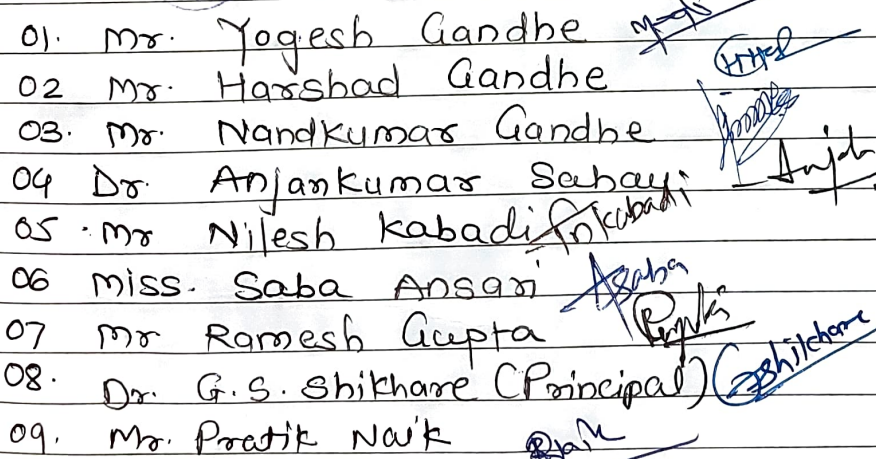 01. Mr. Yogesh Gandhe
02 Mr. Harshad Gandhe
03. Mr. Nandkumar Gandhe
04 Dr. Anjankumar Sahayi
05 . Mr Nilesh Kabadi nkabadi
06 Miss. Saba Ansari Asaba
07 Mr Ramesh Gupta
08. Dr. G. S. Shikhare (Principal) Gshikhare
09. Mr. Pratik Naik